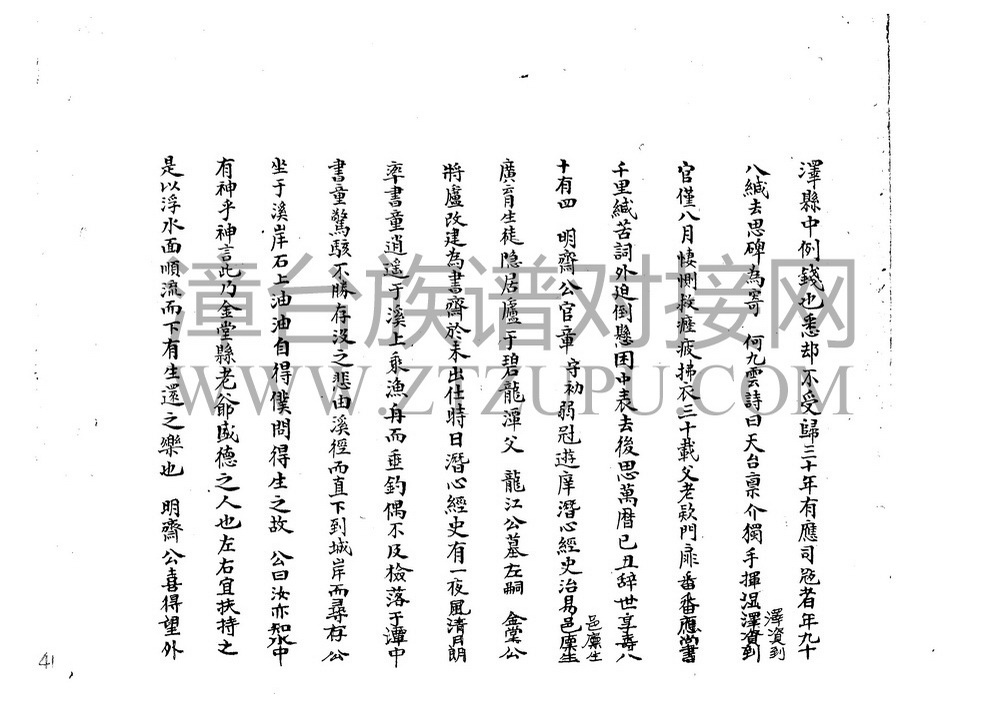 澤縣中例錢也悉却不受歸三十年有應司寇者年九十
澤資到
八緘去思碑為寄 何九雲詩曰天台稟介獨手揮温澤資到
官僅八月悽惻救痤疲拂衣三十載父老款門扉番番應尚書
千里緘苦詞外迫倒懸困中表去後思萬曆己丑辞世享壽八
邑廩生
十有四 明齋公官章守初弱冠遊庠潛心經史治易邑廩生
廣育生徒隐居廬于碧龍潭父 龍江公墓左嗣 金棠公
將廬改建為書齋於未出仕時日潛心經史有一夜風清月朗
率書童逍遥于溪上乘漁舟而垂釣偶不及檢落于潭中
書童驚駭不勝存没之悲由溪徑而直下到城岸而尋存公
坐于溪岸石上油油自得僕問得生之故 公曰汝亦知水中
有神乎神言此乃金堂縣老爺盛德之人也左右宜扶持之
是以浮水面順流而下有生還之樂也 明齋公喜得望外
41
漳台族谱对接网
WWW.ZTZUPU.COM